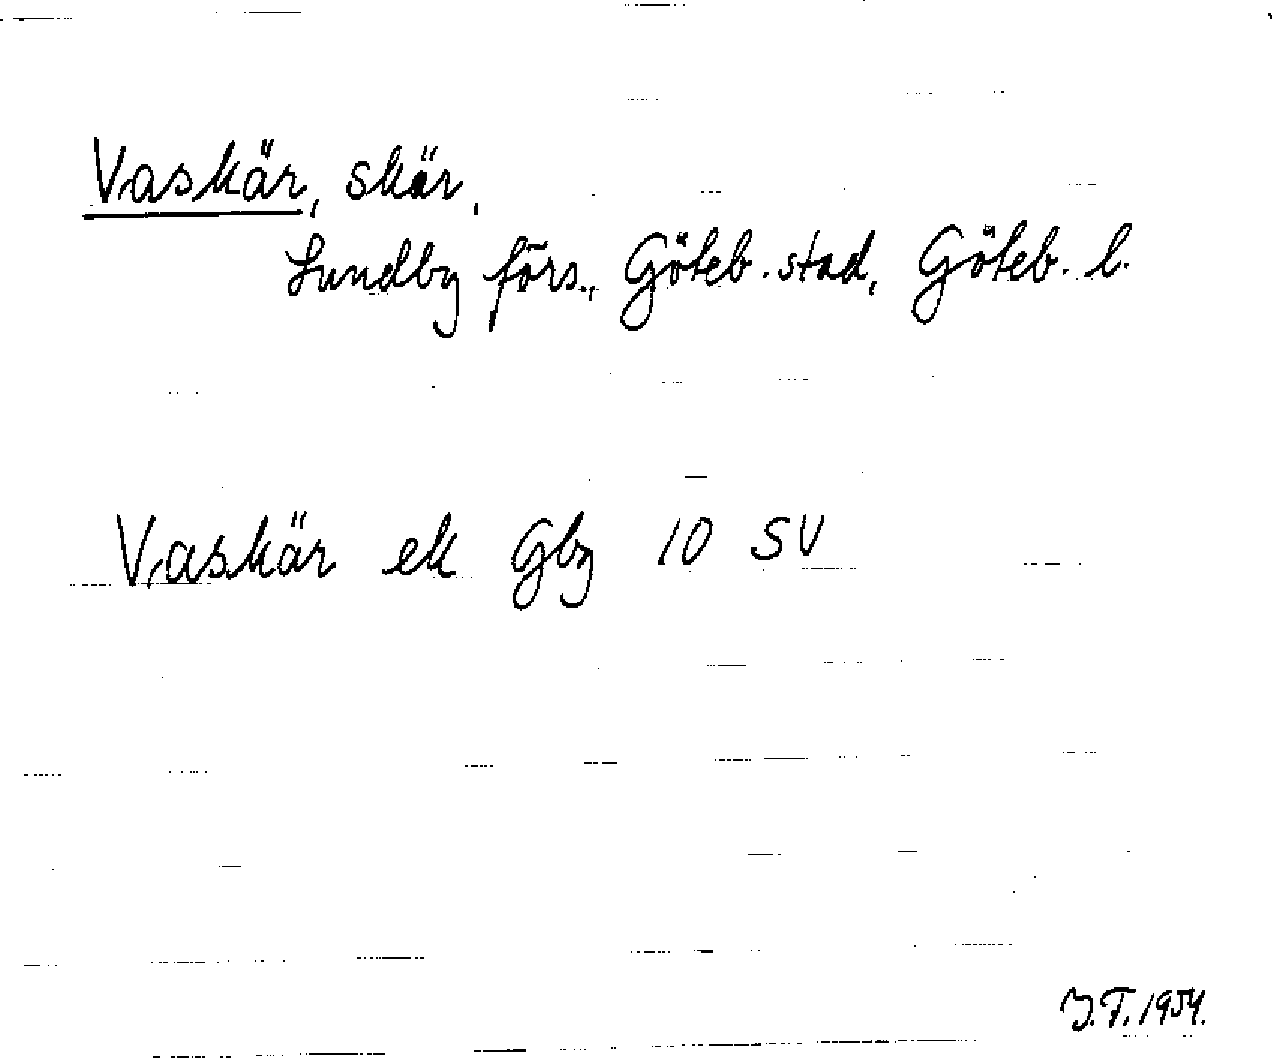 Vaskär, skär,
Lundby förs., Göteb. stad, Göteb. l.
Vaskär ek Gbg 10 SV
I.T. 1954.